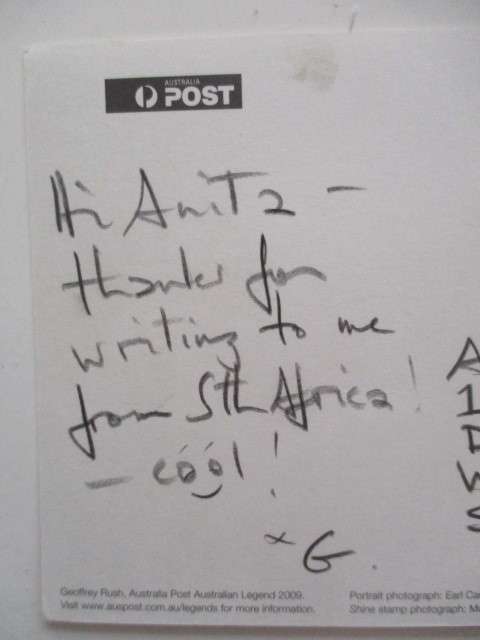 AUSTRALIA
POST
Hi Anita –
thanks for
writing to me
from Sth Africa!
– cool!
x G.
A
1
D
W
S
Geoffrey Rush, Australia Post Australian Legend 2009.
Visit www.auspost.com.au/legends for more information.
Portrait photograph: Earl
Shine stamp photograph: